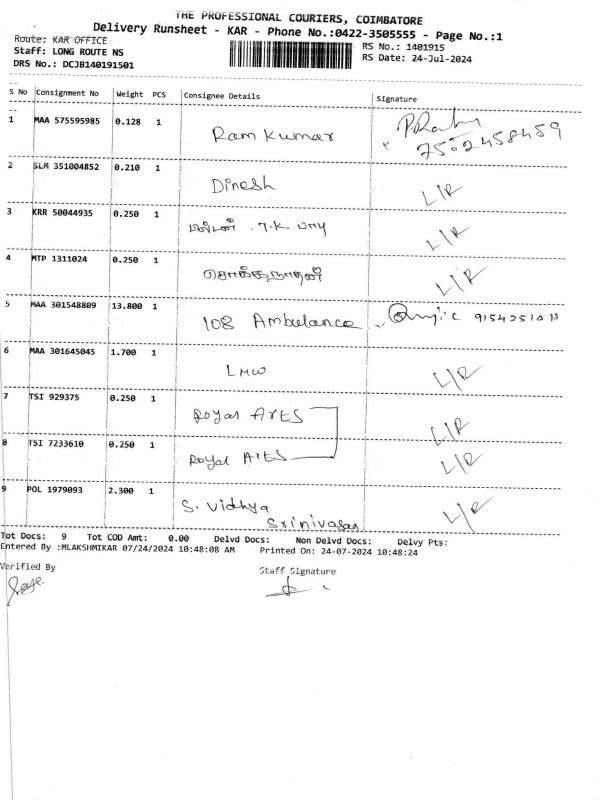 THE PROFESSIONAL COURIERS, COIMBATORE
Delivery Runsheet - KAR - Phone No.:0422-3505555 - Page No.:1
Route: KAR OFFICE
Staff: LONG ROUTE NS
DRS No.: DCJB140191501
RS No.: 1401915
RS Date: 24-Jul-2024
S No Consignment No Weight PCS Consignee Details Signature
1 MAA 575595985 0.128 1 Ram Kumar
2 SLM 351004852 0.210 1 Dinesh L/R
3 KRR 50044935 0.250 1 T.K. பாபு L/R
4 MTP 1311024 0.250 1 சொக்கநாதன் L/R
5 MAA 301548809 13.800 1 108 Ambulance
6 MAA 301645045 1.700 1 LMW L/R
7 TSI 929375 0.250 1 Royal ArtS L/R
8 TSI 7233610 0.250 1 Royal ArtS L/R
9 POL 1979093 2.300 1 S. Vidhya Srinivasan L/R
Tot Docs: 9 Tot COD Amt: 0.00 Delvd Docs: Non Delvd Docs: Delvy Pts:
Entered By :MLAKSHMIKAR 07/24/2024 10:48:08 AM Printed On: 24-07-2024 10:48:24
Verified By
Staff Signature